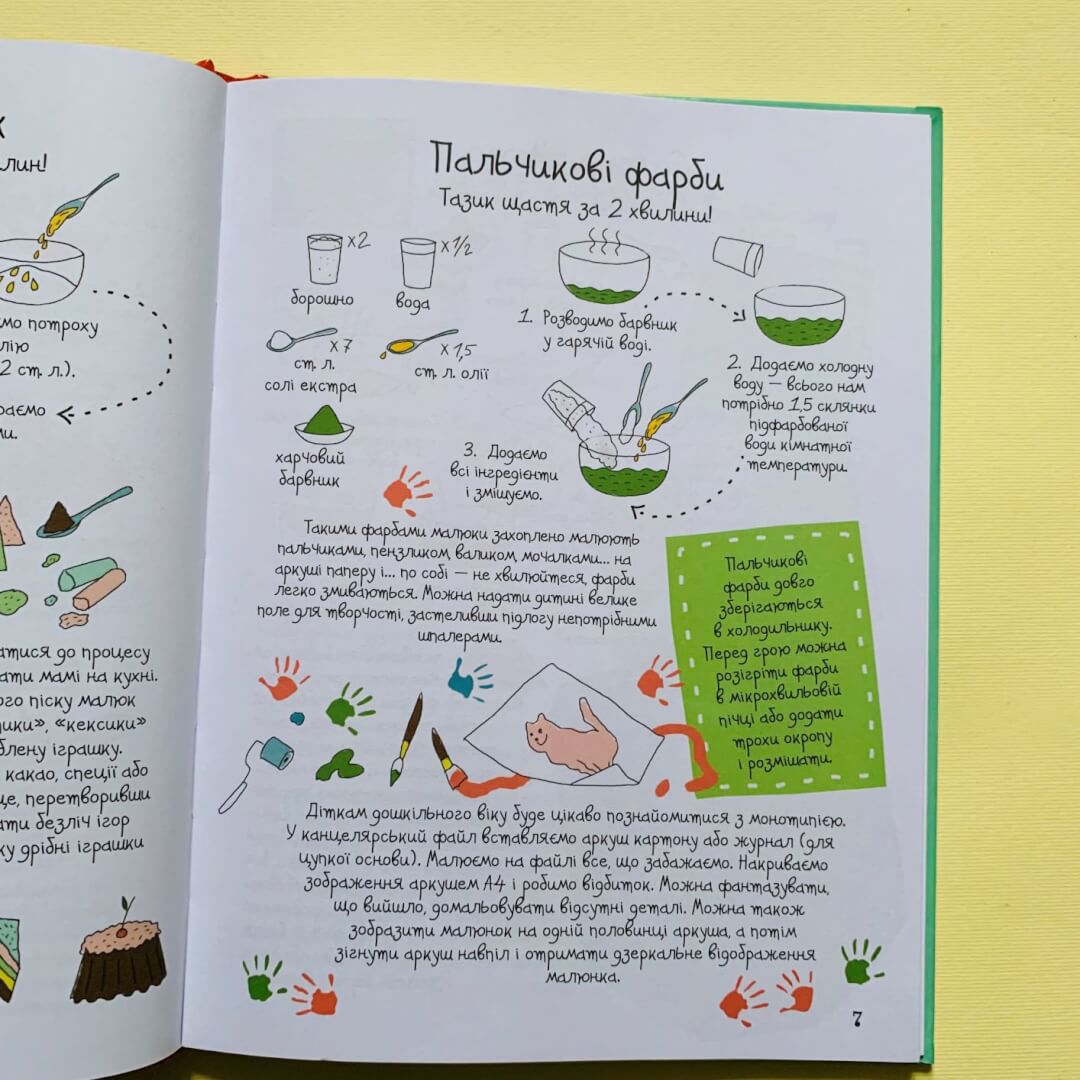 лин!
мо потроху
лію
2 ст. л.).
раємо
ми.
атися до процесу
ати мамі на кухні.
ого піску малюк
«кексики»
блену іграшку.
какао, спеції або
це, перетворивши
ати безліч ігор
ку дрібні іграшки
Пальчикові фарби
Тазик щастя за 2 хвилини!
x2
x1/2
борошно
вода
x7
x1,5
ст. л.
солі екстра
ст. л. олії
харчовий
барвник
1. Розводимо барвник
у гарячій воді.
2. Додаємо холодну
воду — всього нам
потрібно 1,5 склянки
підфарбованої
води кімнатної
температури.
3. Додаємо
всі інгредієнти
і змішуємо.
Такими фарбами малюки захоплено малюють
пальчиками, пензликом, валиком, мочалками... на
аркуші паперу і... по собі — не хвилюйтеся, фарби
легко змиваються. Можна надати дитині велике
поле для творчості, застеливши підлогу непотрібними
шпалерами.
Пальчикові
фарби довго
зберігаються
в холодильнику.
Перед грою можна
розігріти фарби
в мікрохвильовій
пічці або додати
трохи окропу
і розмішати.
Діткам дошкільного віку буде цікаво познайомитися з монотипією.
У канцелярський файл вставляємо аркуш картону або журнал (для
цупкої основи). Малюємо на файлі все, що забажаємо. Накриваємо
зображення аркушем А4 і робимо відбиток. Можна фантазувати,
що вийшло, домальовувати відсутні деталі. Можна також
зобразити малюнок на одній половинці аркуша, а потім
зігнути аркуш навпіл і отримати дзеркальне відображення
малюнка.
7